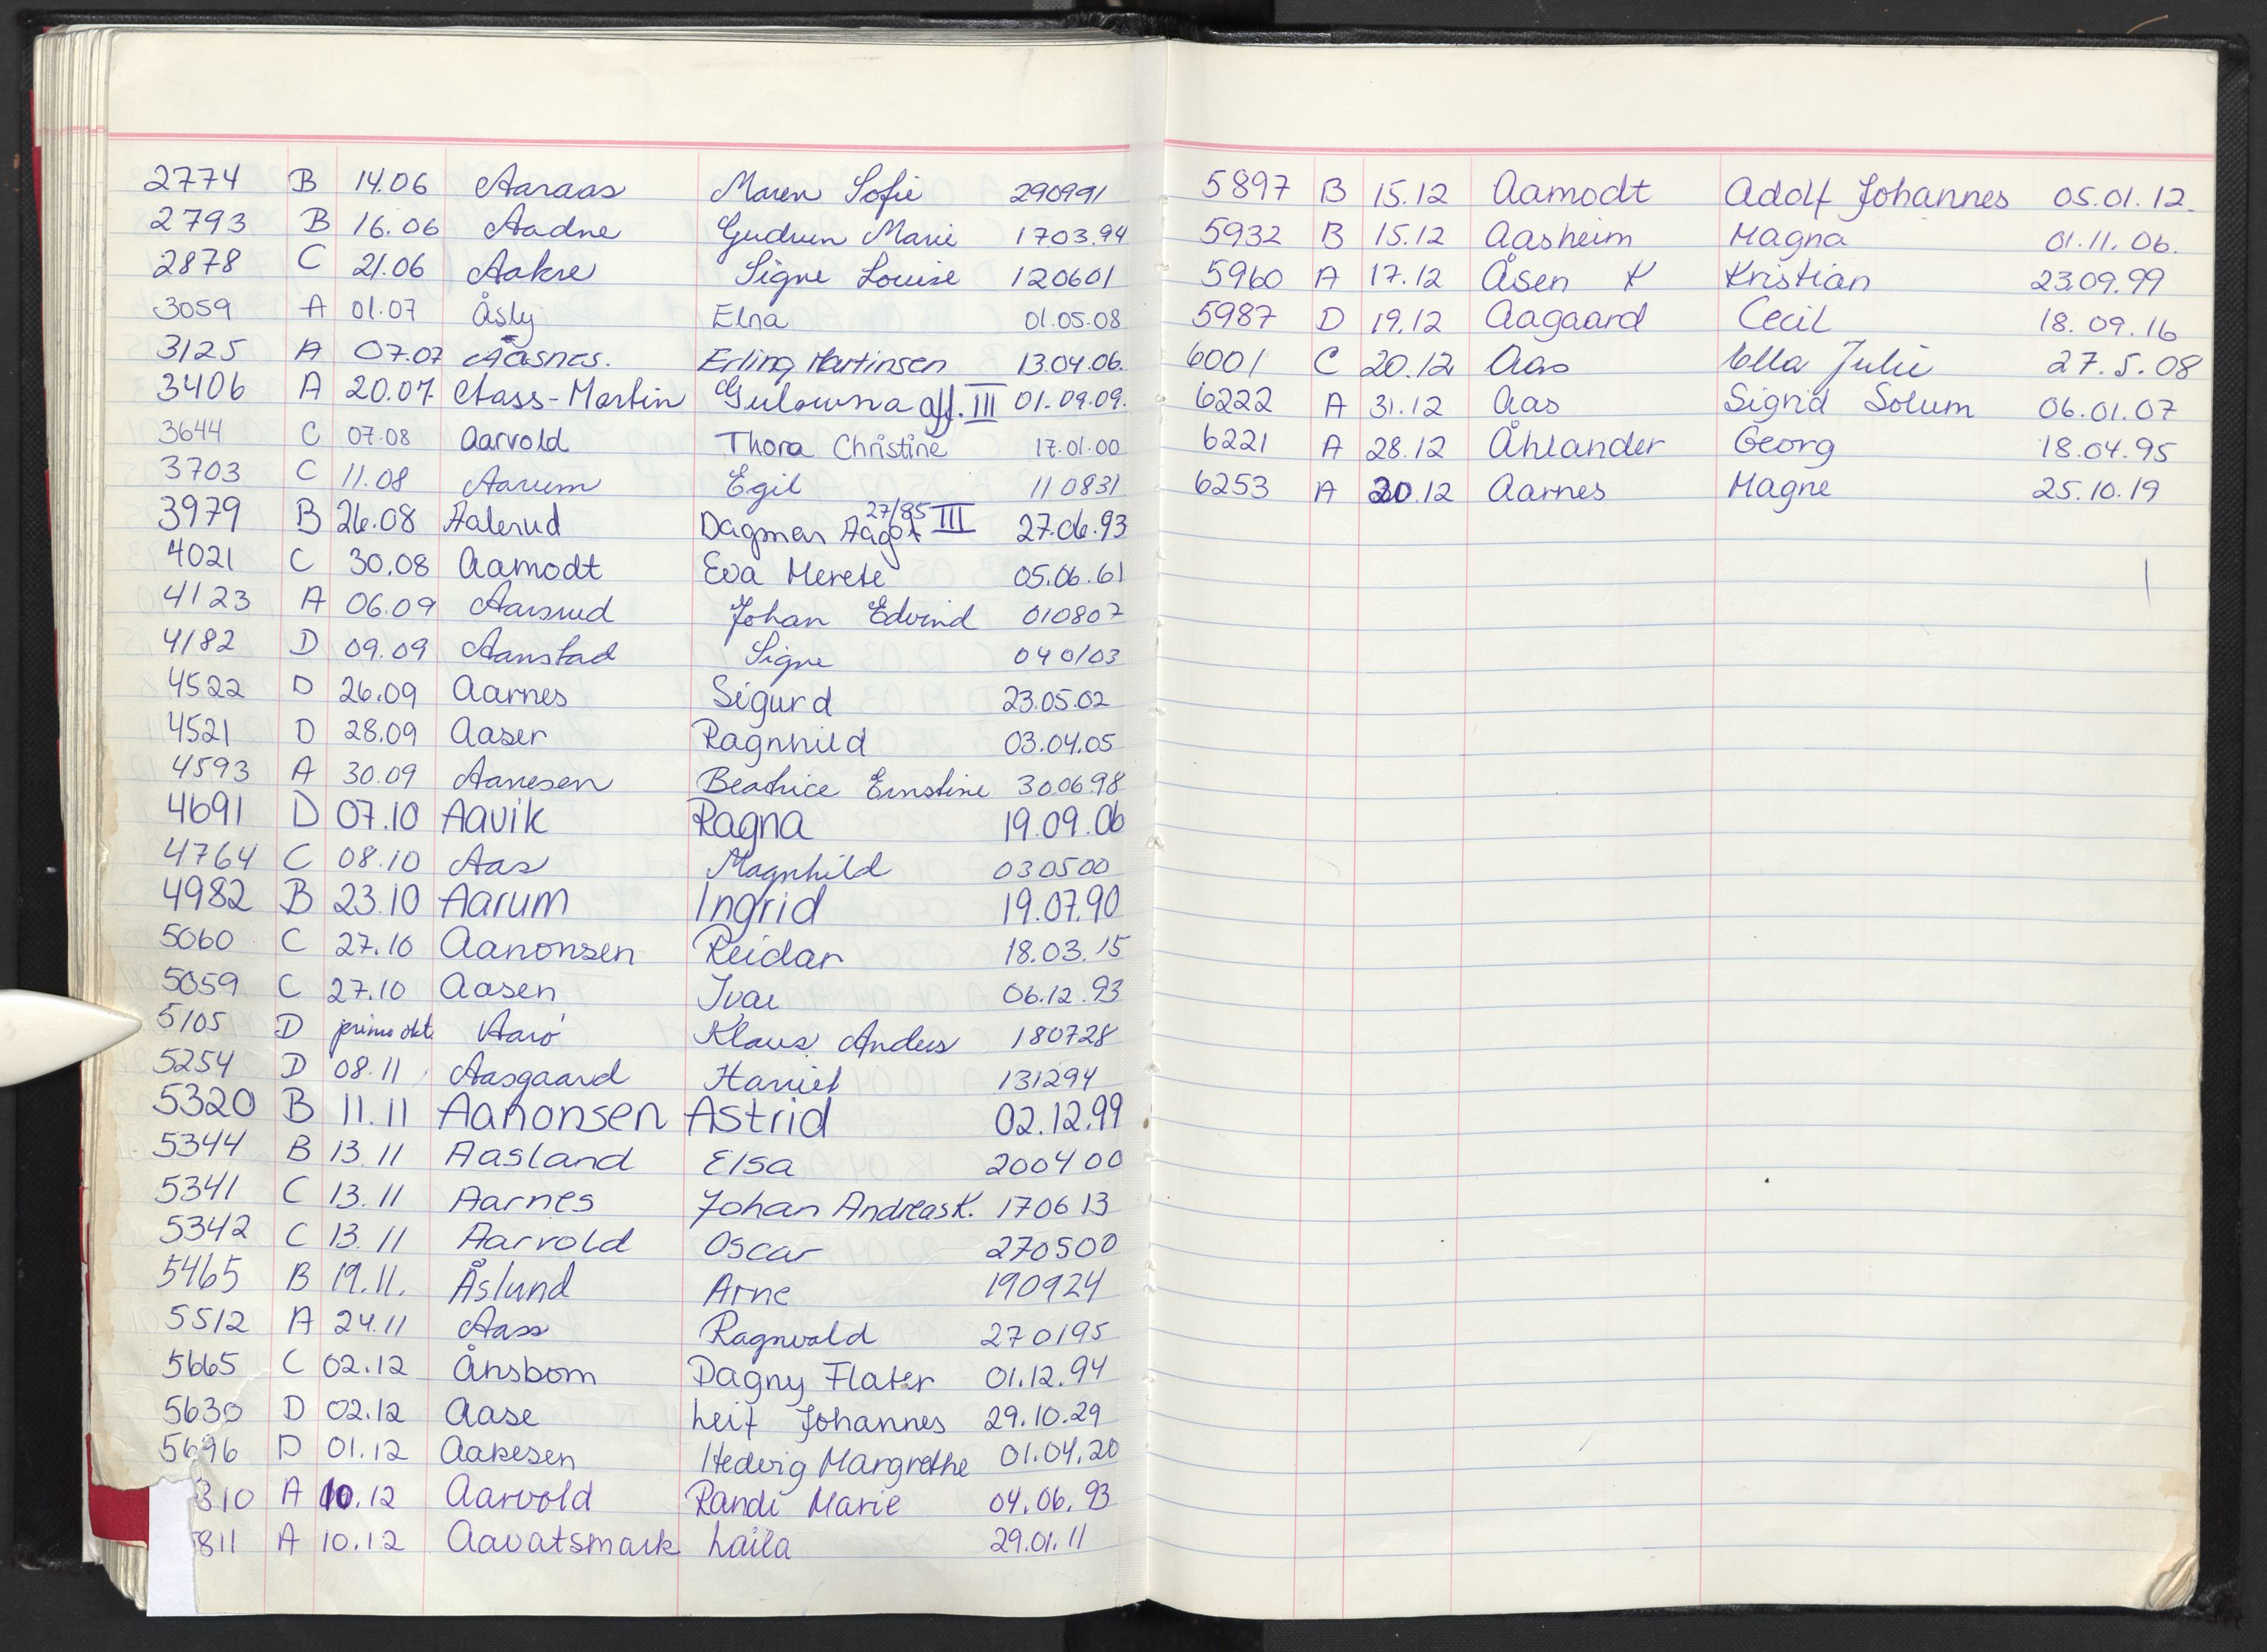 2774 B 14.06 Aaraas Maren Sofie 290991
2793 B 16.06 Aadne Gudrun Marie 170394
2878 C 21.06 Aakre Signe Louise 120601
3059 A 01.07 Åsly Elna 01.05.08
3125 A 07.07 Aasnes. Erling Martinsen 13.04.06.
3406 A 20.07. Aass-Martin Gulowna aff. III 01.09.09.
3644 C 07.08 Aarvold Thora Christine 17.01.00
3703 C 11.08 Aarum Egil 110831
3979 B 26.08 Aalerud Dagmar Aagot 27/85 III 27.06.93
4021 C 30.08 Aamodt Eva Merete 05.06.61
4123 A 06.09 Aarsrud Johan Edvind 010807
4182 D 09.09 Aanstad Signe 040103
4522 D 26.09 Aarnes Sigurd 23.05.02
4521 D 28.09 Aaser Ragnhild 03.04.05
4593 A 30.09 Aanesen Beatrice Ernstine 300698
4691 D 07.10 Aavik Ragna 19.09.06
4764 C 08.10 Aas Magnhild 030500
4982 B 23.10 Aarum Ingrid 19.07.90
5060 C 27.10 Aanonsen Reidar 18.03.15
5059 C 27.10 Aasen Ivar 06.12.93
5105 D primo okt. Aarö Klaus Anders 180728
5254 D 08.11 Aasgaard Harriet 131294
5320 B 11.11 Aanonsen Astrid 02.12.99
5344 B 13.11 Aasland Elsa 200400
5341 C 13.11 Aarnes Johan Andreas K. 170613
5342 C 13.11 Aarvold Oscar 270500
5465 B 19.11. Åslund Arne 190924
5512 A 24.11 Aass Ragnvald 270195
5665 C 02.12 Ånsbom Dagny Flater 01.12.94
5630 D 02.12 Aase Leif Johannes 29.10.29
5696 D 01.12 Aakesen Hedvig Margrethe 01.04.20
310 A 10.12 Aarvold Randi Marie 04.06.93
811 A 10.12 Aavatsmark Laila 29.01.11
5897 B 15.12 Aamodt Adolf Johannes 05.01.12.
5932 B 15.12 Aasheim Magna 01.11.06.
5960 A 17.12 Åsen K Kristian 23.09.99
5987 D 19.12 Aagaard Cecil 18.09.16
6001 C 20.12 Aas Ella Julie 27.5.08
6222 A 31.12 Aas Sigrid Solum 06.01.07
6221 A 28.12 Åhlander Georg 18.04.95
6253 A 30.12 Aarnes Magne 25.10.19